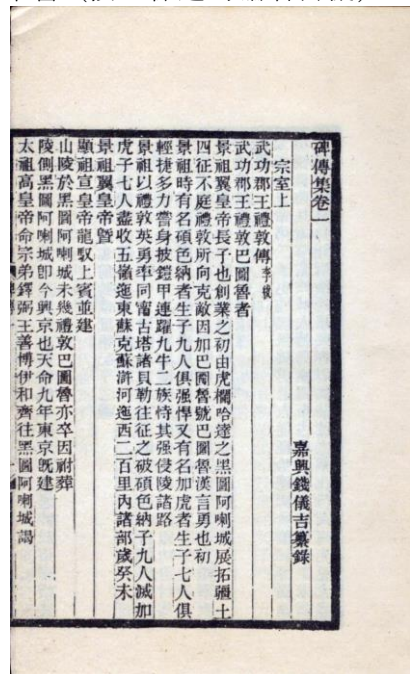 碑傳集卷一
嘉興錢儀吉纂錄
宗室上
武功郡王禮敦傳李桓
武功郡王禮敦巴圖魯者
景祖翼皇帝長子也創業之初由虎欄哈達之黑圖阿喇城展拓疆土
四征不庭禮敦所向克敵因加巴圖魯號巴圖魯漢言勇也初
景祖時有名碩色納者生子九人俱强悍又有名加虎者生子七人俱
輕捷多力嘗身披鎧甲連躍九牛二族恃其强侵陵諸路
景祖以禮敦英勇率同甯古塔諸貝勒往征之破碩色納子九人滅加
虎子七人盡收五嶺迤東蘇克蘇滸河迤西二百里內諸部歲癸未
景祖翼皇帝曁
顯祖宣皇帝龍馭上賓並建
山陵於黑圖阿喇城未幾禮敦巴圖魯亦卒因祔葬
陵側黑圖阿喇城卽今興京也天命九年東京旣建
太祖高皇帝命宗弟鐸弼王善博伊和齊往黑圖阿喇城謁